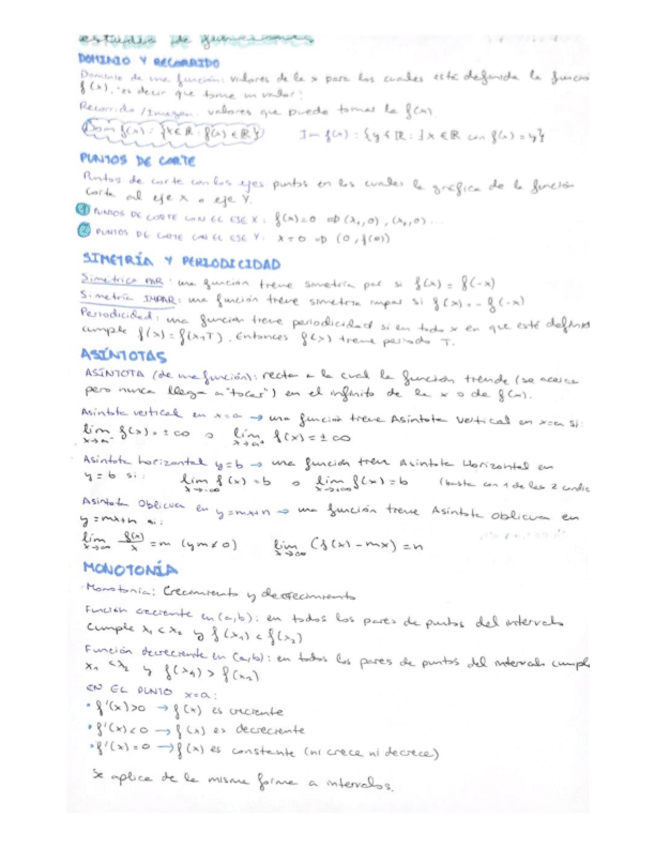 estudio de funciones
DOMINIO Y RECORRIDO
Dominio de una función: valores de la x para los cuales esté definida la función
f(x), es decir que tome un valor.
Recorrido/Imagen: valores que puede tomar la f(x).
Dom f(x): {x∈ℝ: f(x)∈ℝ} Im f(x): {y∈ℝ: ∃x∈ℝ con f(x)=y}
PUNTOS DE CORTE
Puntos de corte con los ejes puntos en los cuales la gráfica de la función
corta al eje X o eje Y.
① PUNTOS DE CORTE CON EL EJE X: f(x)=0 ⇒ (x₁,0), (x₂,0)...
② PUNTOS DE CORTE CON EL EJE Y: x=0 ⇒ (0, f(0))
SIMETRÍA Y PERIODICIDAD
Simétrica PAR: una función tiene simetría par si f(x) = f(-x)
Simetría IMPAR: una función tiene simetría impar si f(x) = -f(-x)
Periodicidad: una función tiene periodicidad si en todo x en que esté defini
cumple f(x)=f(x+T). Entonces f(x) tiene periodo T.
ASÍNTOTAS
ASÍNTOTA (de una función): recta a la cual la función tiende (se acerca
pero nunca llega a "tocar") en el infinito de la x o de f(x).
Asíntota vertical en x=a → una función tiene Asíntota Vertical en x=a si:
lim x→a⁻ f(x)=±∞ o lim x→a⁺ f(x)=±∞
Asíntota horizontal y=b → una función tiene Asíntota Horizontal en
y=b si: lim x→-∞ f(x)=b o lim x→+∞ f(x)=b (basta con 1 de las 2 condic
Asíntota Oblicua en y=mx+n → una función tiene Asíntota Oblicua en
y=mx+n si:
lim x→∞ f(x)/x = m (y m≠0) lim x→∞ (f(x)-mx) = n
MONOTONÍA
Monotonía: Crecimiento y decrecimiento
Función creciente en (a,b): en todos los pares de puntos del intervalo
cumple x₁ < x₂ y f(x₁) < f(x₂)
Función decreciente en (a,b): en todos los pares de puntos del intervalo cumple
x₁ < x₂ y f(x₁) > f(x₂)
EN EL PUNTO x=a:
• f'(x)>0 → f(x) es creciente
• f'(x)<0 → f(x) es decreciente
• f'(x)=0 → f(x) es constante (ni crece ni decrece)
Se aplica de la misma forma a intervalos.